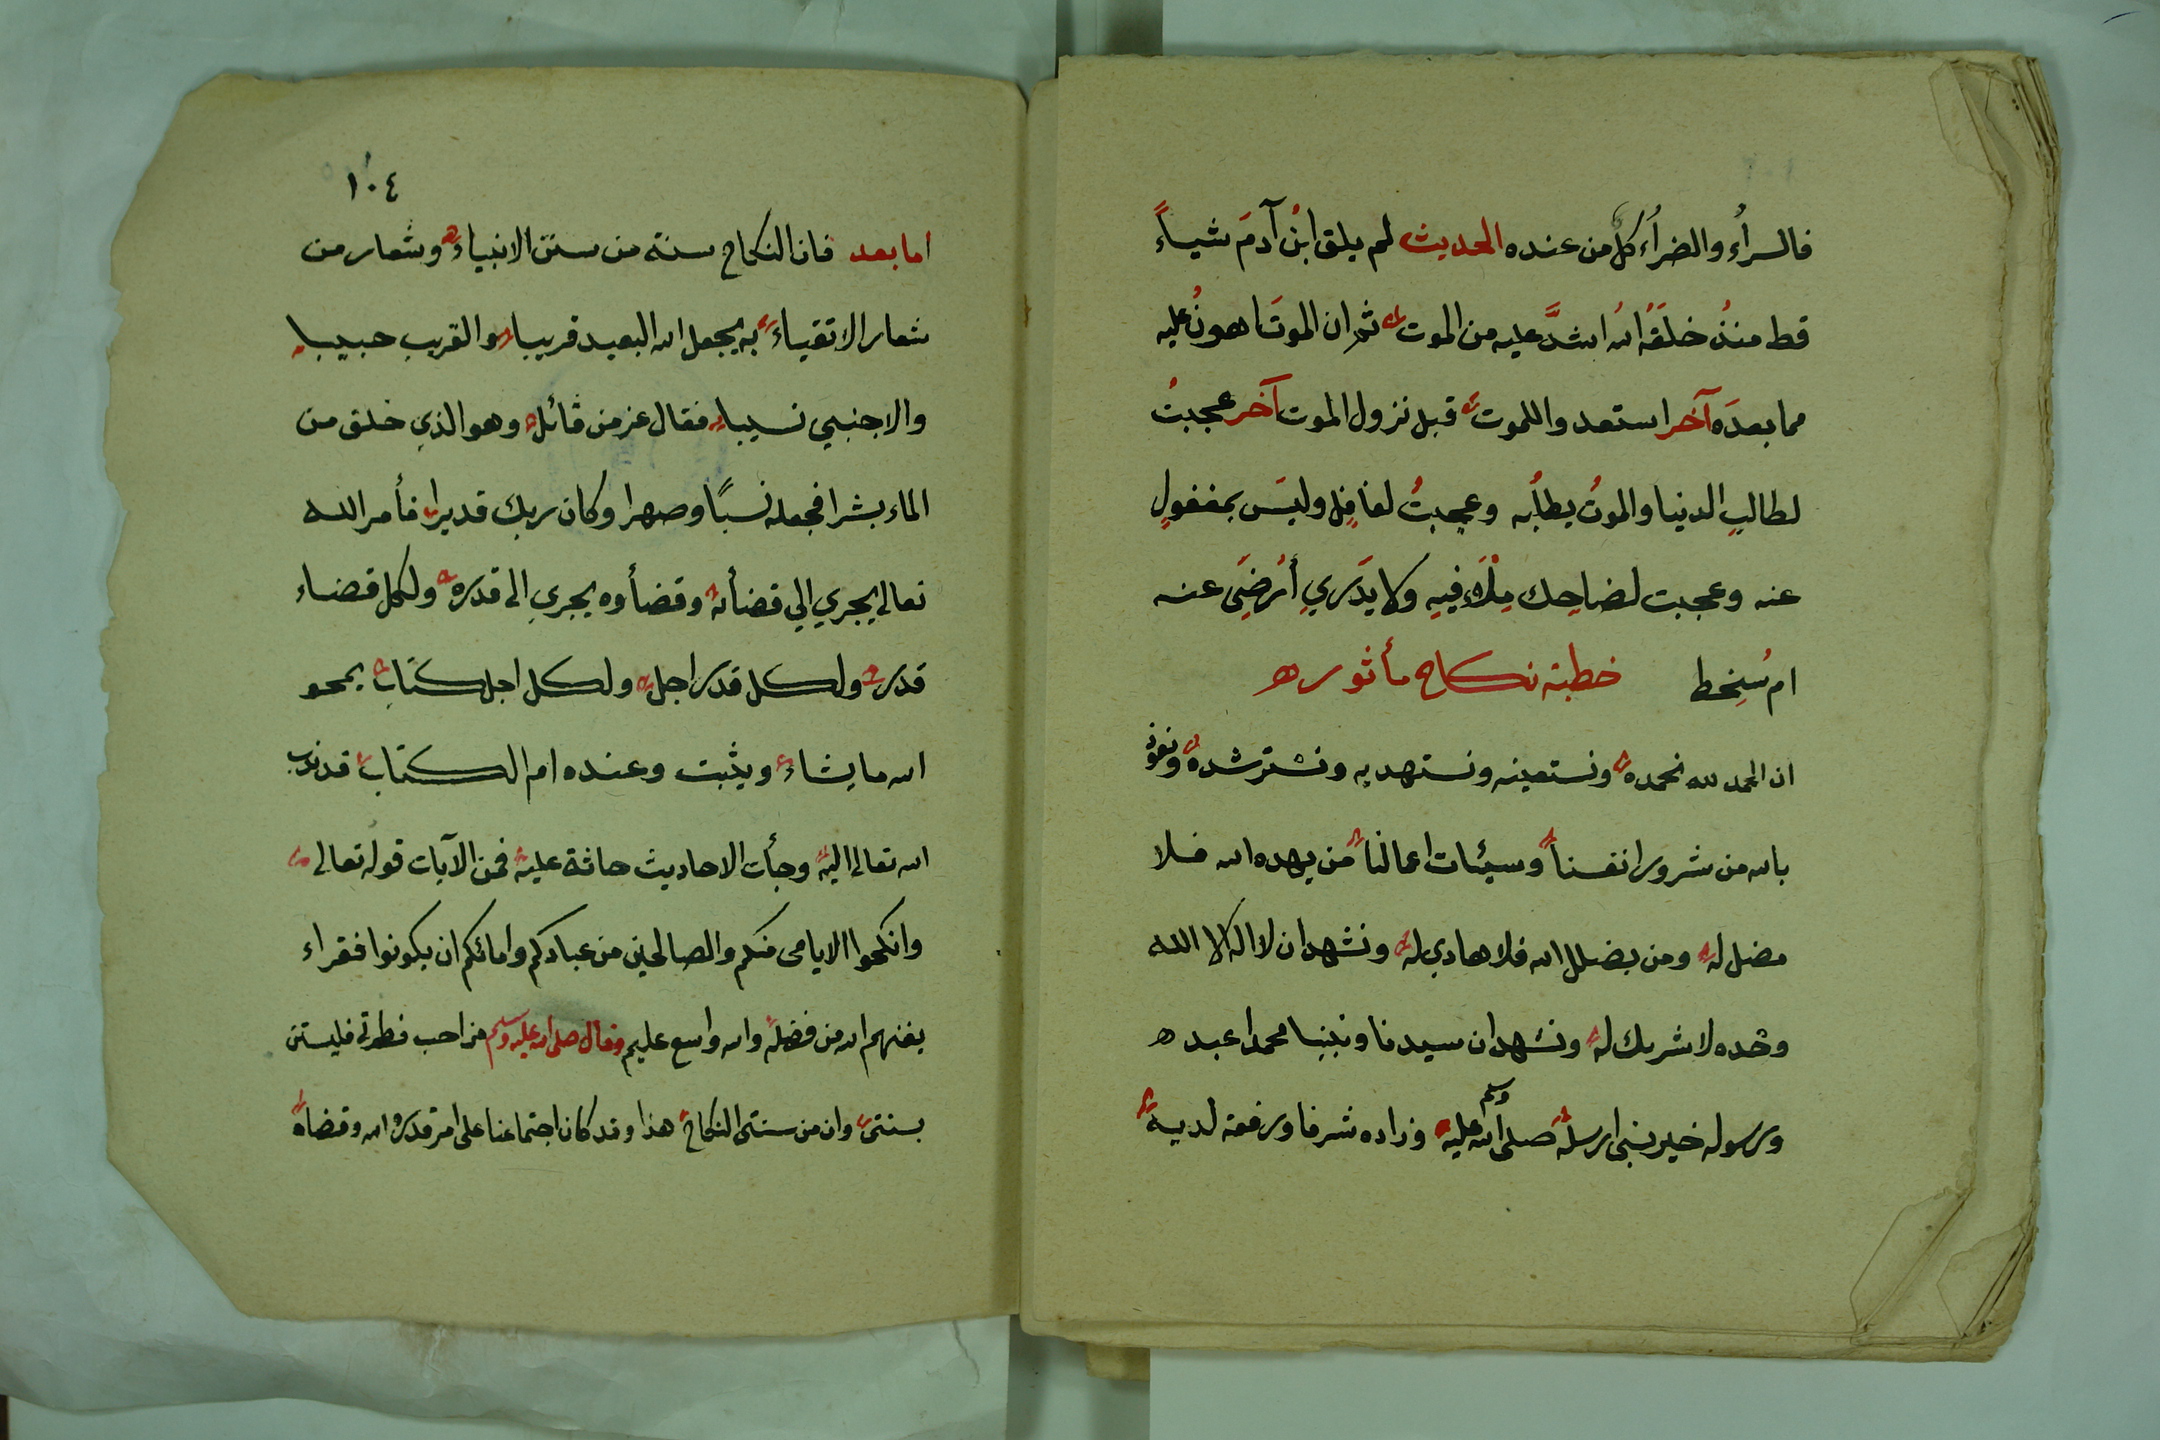 فالسراُء والضراُء كلٌ من عنده الحديث لم يلق ابنُ آدمَ شيـاءً
قط منذُ خلقَهُ اللهُ اشدَّ عليه من الموت ثم ان الموتَ اهونُ عليه
مما بعدَه آخر استعدوا للموت قبل نزول الموت آخر عجبتُ
لطالبِ الدنيا والموتُ يطلُبه وعجبتُ لغافِلٍ وليسَ بمغفولٍ
عنه وعجبت لضاحِك مِلْاَءِ فيهِ ولا يدَري أُرْضِيَ عنه
ام سُخِط خطبة نكاح مأثوره
ان الحمد لله نحمده ونستعينه ونستهديه ونسترشده ونعوذ
بالله من شرور انفسنا وسيئات اعمالنا من يهده الله فلا
مضل له ومن يضلل الله فلا هادي له ونشهد ان لا اله الا الله
وحده لا شريك له ونشهد ان سيدنا ونبينا محمدا عبده
ورسوله خير نبي ارسله صلى الله عليه وسلم وزاده شرفا ورفعة لديه
١٠٤
اما بعد فان النكاح سنة من سنن الانبياء وشعار من
شعار الاتقياء به يجعل الله البعيد قريبا والقريب حبيبا
والاجنبي نسيبا فقال عز من قائل وهو الذي خلق من
الماء بشرا فجعله نسبًا وصهرا وكان ربك قديرا فأمر الله
تعالى يجري الي قضأئه وقضأوه يجري الى قدره ولكل قضاء
قدر ولكل قدر اجل ولكل اجل كتاب يمحو
الله ما يشاء ويثبت وعنده ام الكتاب قد ندب
الله تعالى اليه وجأت الاحاديث حاثة عليه فمن الآيات قوله تعالى
وانكحوا الايامى منكم والصالحين من عبادكم وامائكم ان يكونوا فقراء
يغنهم الله من فضله والله واسع عليم وقال صلى الله عليه وسلم من احب فطرتي فليستن
بسنتي وان من سنتي النكاح هذا وقد كان اجتماعنا على امر قدره الله وقضاه